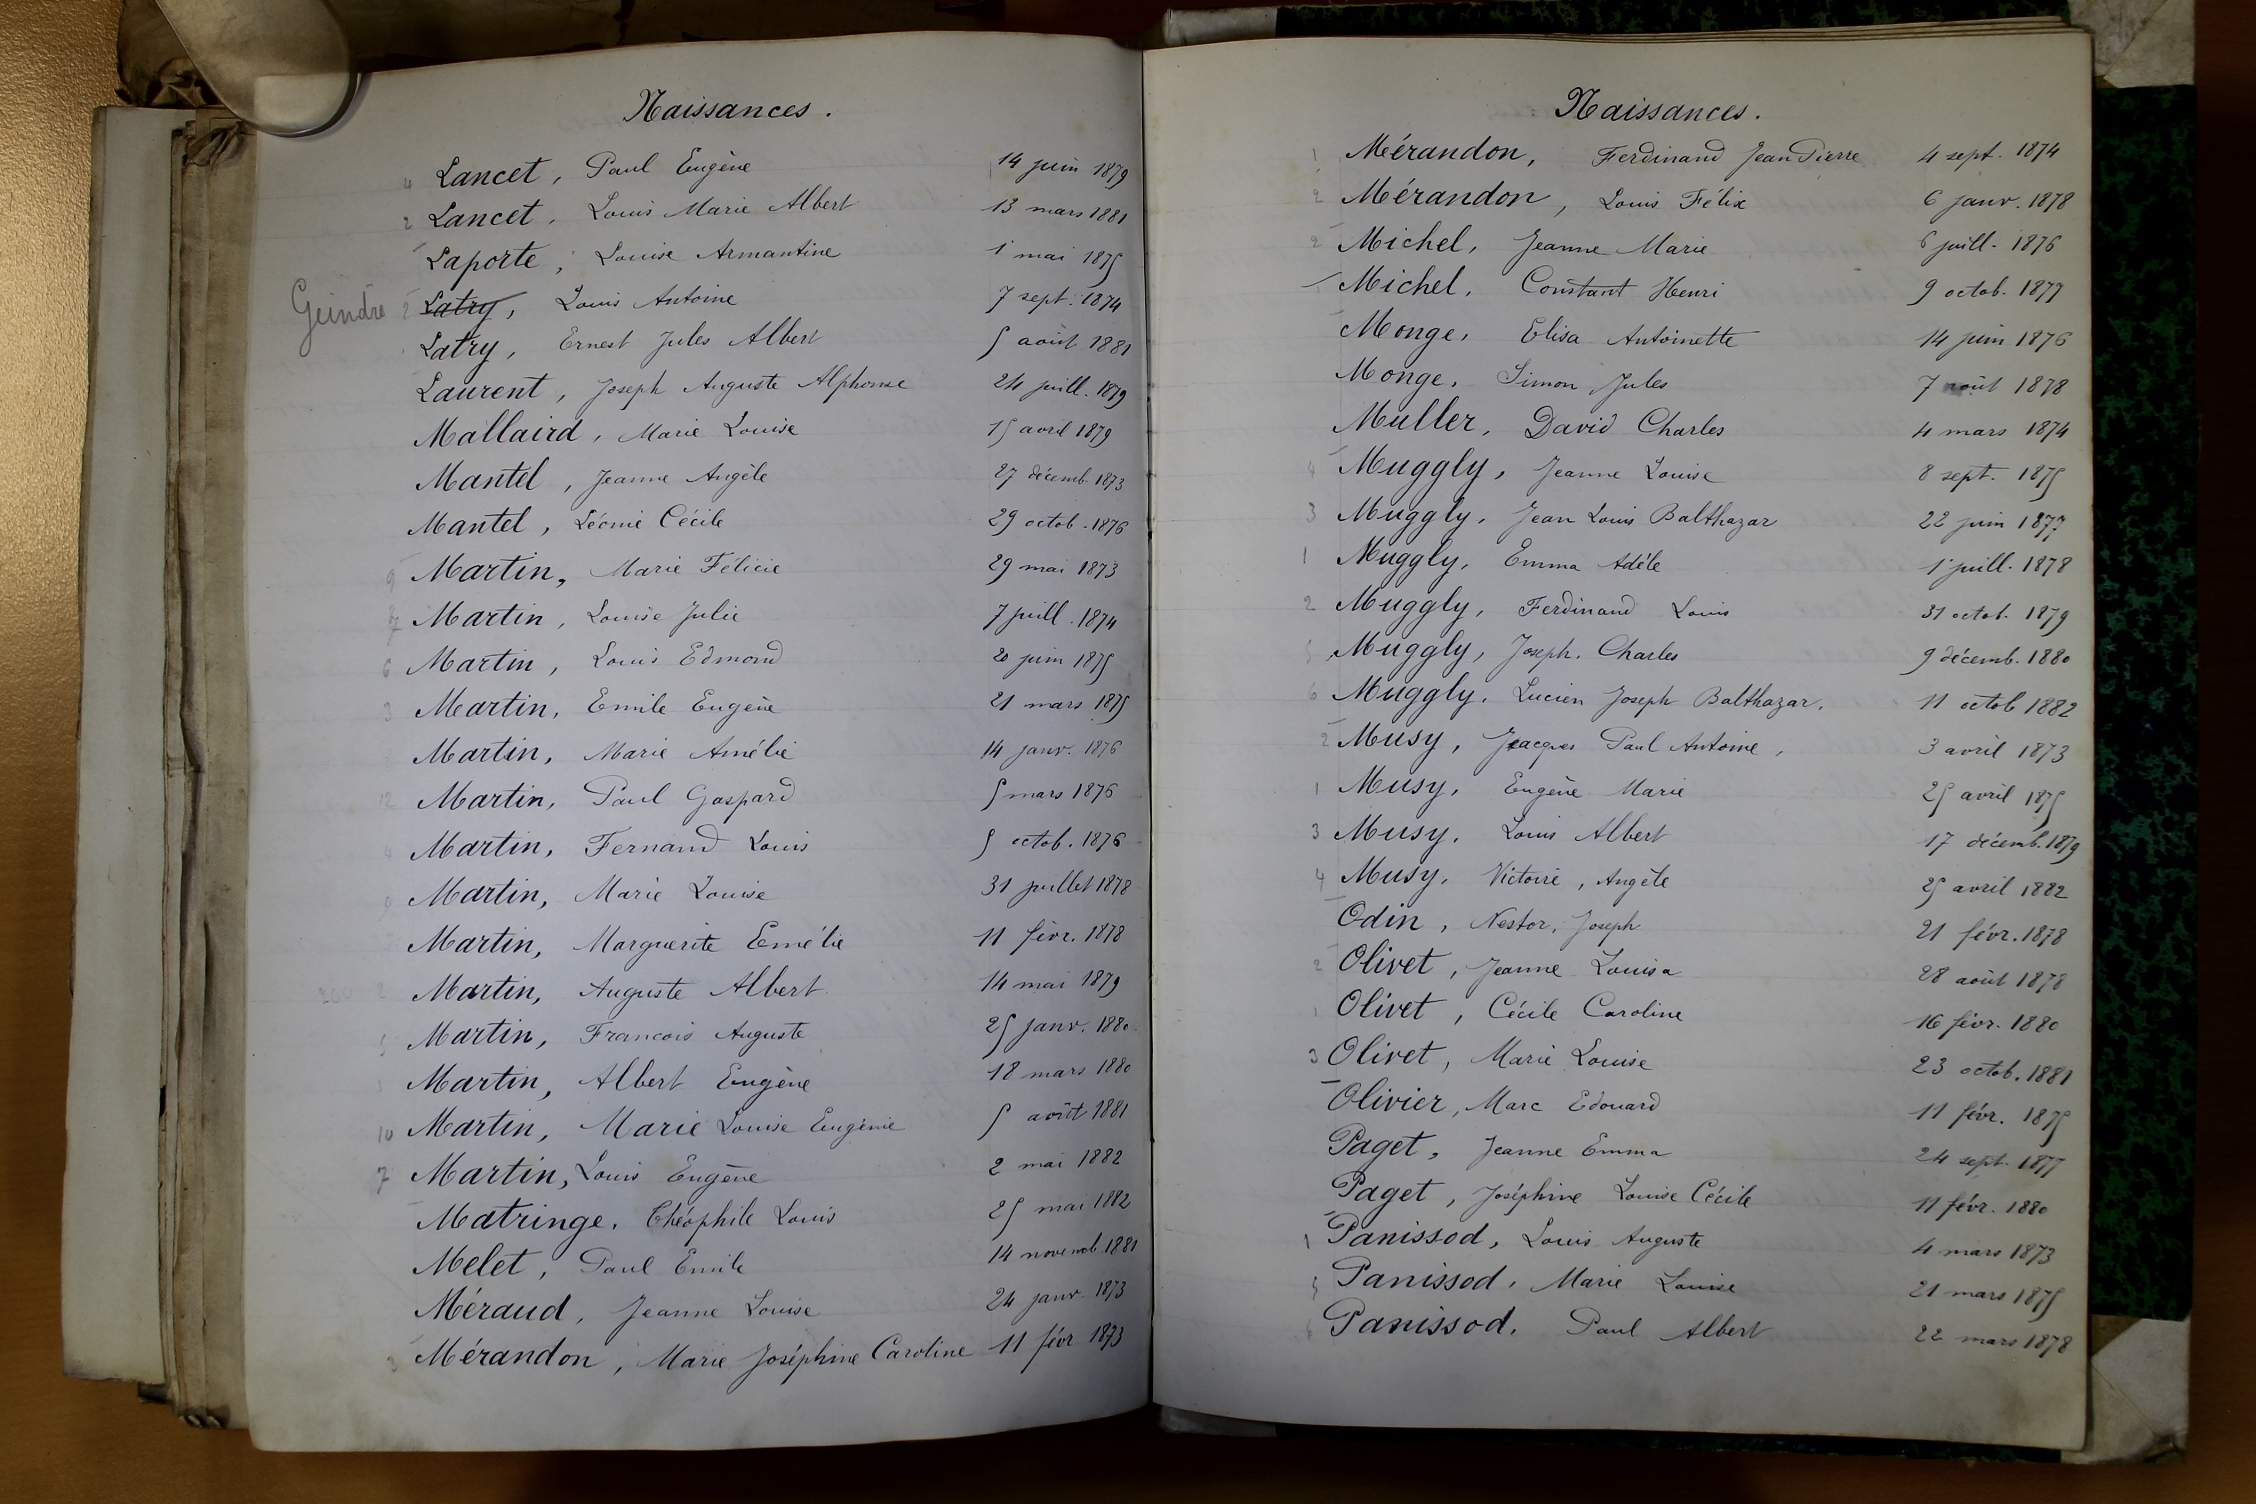 Naissances.
4 Lancet, Paul Eugène 14 juin 1879
2 Lancet, Louis Marie Albert 13 mars 1881
Laporte, Louise Armantine 1 mai 1875
Geindre 2 Latry, Louis Antoine 7 sept. 1874
Latry, Ernest Jules Albert 5 août 1881
Laurent, Joseph Auguste Alphonse 24 juill. 1879
Mallaird, Marie Louise 15 avril 1879
Mantel, Jeanne Angèle 27 décemb. 1873
Mantel, Léonie Cécile 29 octob. 1876
9 Martin, Marie Félicie 29 mai 1873
Martin, Louise Julie 7 juill. 1874
6 Martin, Louis Edmond 20 juin 1875
3 Martin, Emile Eugène 21 mars 1875
Martin, Marie Amélie 14 janv. 1876
12 Martin, Paul Gaspard 5 mars 1876
4 Martin, Fernand Louis 5 octob. 1876
Martin, Marie Louise 31 juillet 1878
Martin, Marguerite Emélie 11 févr. 1878
200 2 Martin, Auguste Albert 14 mai 1879
5 Martin, Francois Auguste 25 janv. 1880
Martin, Albert Eugène 18 mars 1880
10 Martin, Marie Louise Eugénie 5 août 1881
7 Martin, Louis Eugène 2 mai 1882
Matringe, Théophile Louis 25 mai 1882
Melet, Paul Emile 14 novemb. 1881
Méraud, Jeanne Louise 24 janv 1873
3 Mérandon, Marie Joséphine Caroline 11 févr 1873
Naissances.
1 Mérandon, Ferdinand Jean Pierre 4 sept. 1874
2 Mérandon, Louis Félix 6 janv. 1878
2 Michel, Jeanne Marie 6 juill. 1876
Michel, Constant Henri 9 octob. 1877
Monge, Elisa Antoinette 14 juin 1876
Monge, Simon Jules 7 août 1878
Muller, David Charles 4 mars 1874
4 Muggly, Jeanne Louise 8 sept. 1875
3 Muggly, Jean Louis Balthazar 22 juin 1877
1 Muggly, Emma Adèle 1 juill. 1878
2 Muggly, Ferdinand Louis 31 octob. 1879
5 Muggly, Joseph. Charles 9 décemb. 1880
6 Muggly, Lucien Joseph Balthazar. 11 octob 1882
2 Musy, Jacques Paul Antoine, 3 avril 1873
1 Musy, Eugène Marie 25 avril 1875
3 Musy, Louis Albert 17 décemb. 1879
4 Musy, Victoire, Angèle 25 avril 1882
Odin, Nestor, Joseph 21 févr. 1878
2 Olivet, Jeanne Louisa 28 août 1878
1 Olivet, Cécile Caroline 16 févr. 1880
3 Olivet, Marie Louise 23 octob. 1881
Olivier, Marc Edouard 11 févr. 1875
Paget, Jeanne Emma 24 sept. 1877
Paget, Joséphine Louise Cécile 11 févr. 1880
1 Panissod, Louis Auguste 4 mars 1873
5 Panissod, Marie Louise 21 mars 1875
6 Panissod, Paul Albert 22 mars 1878